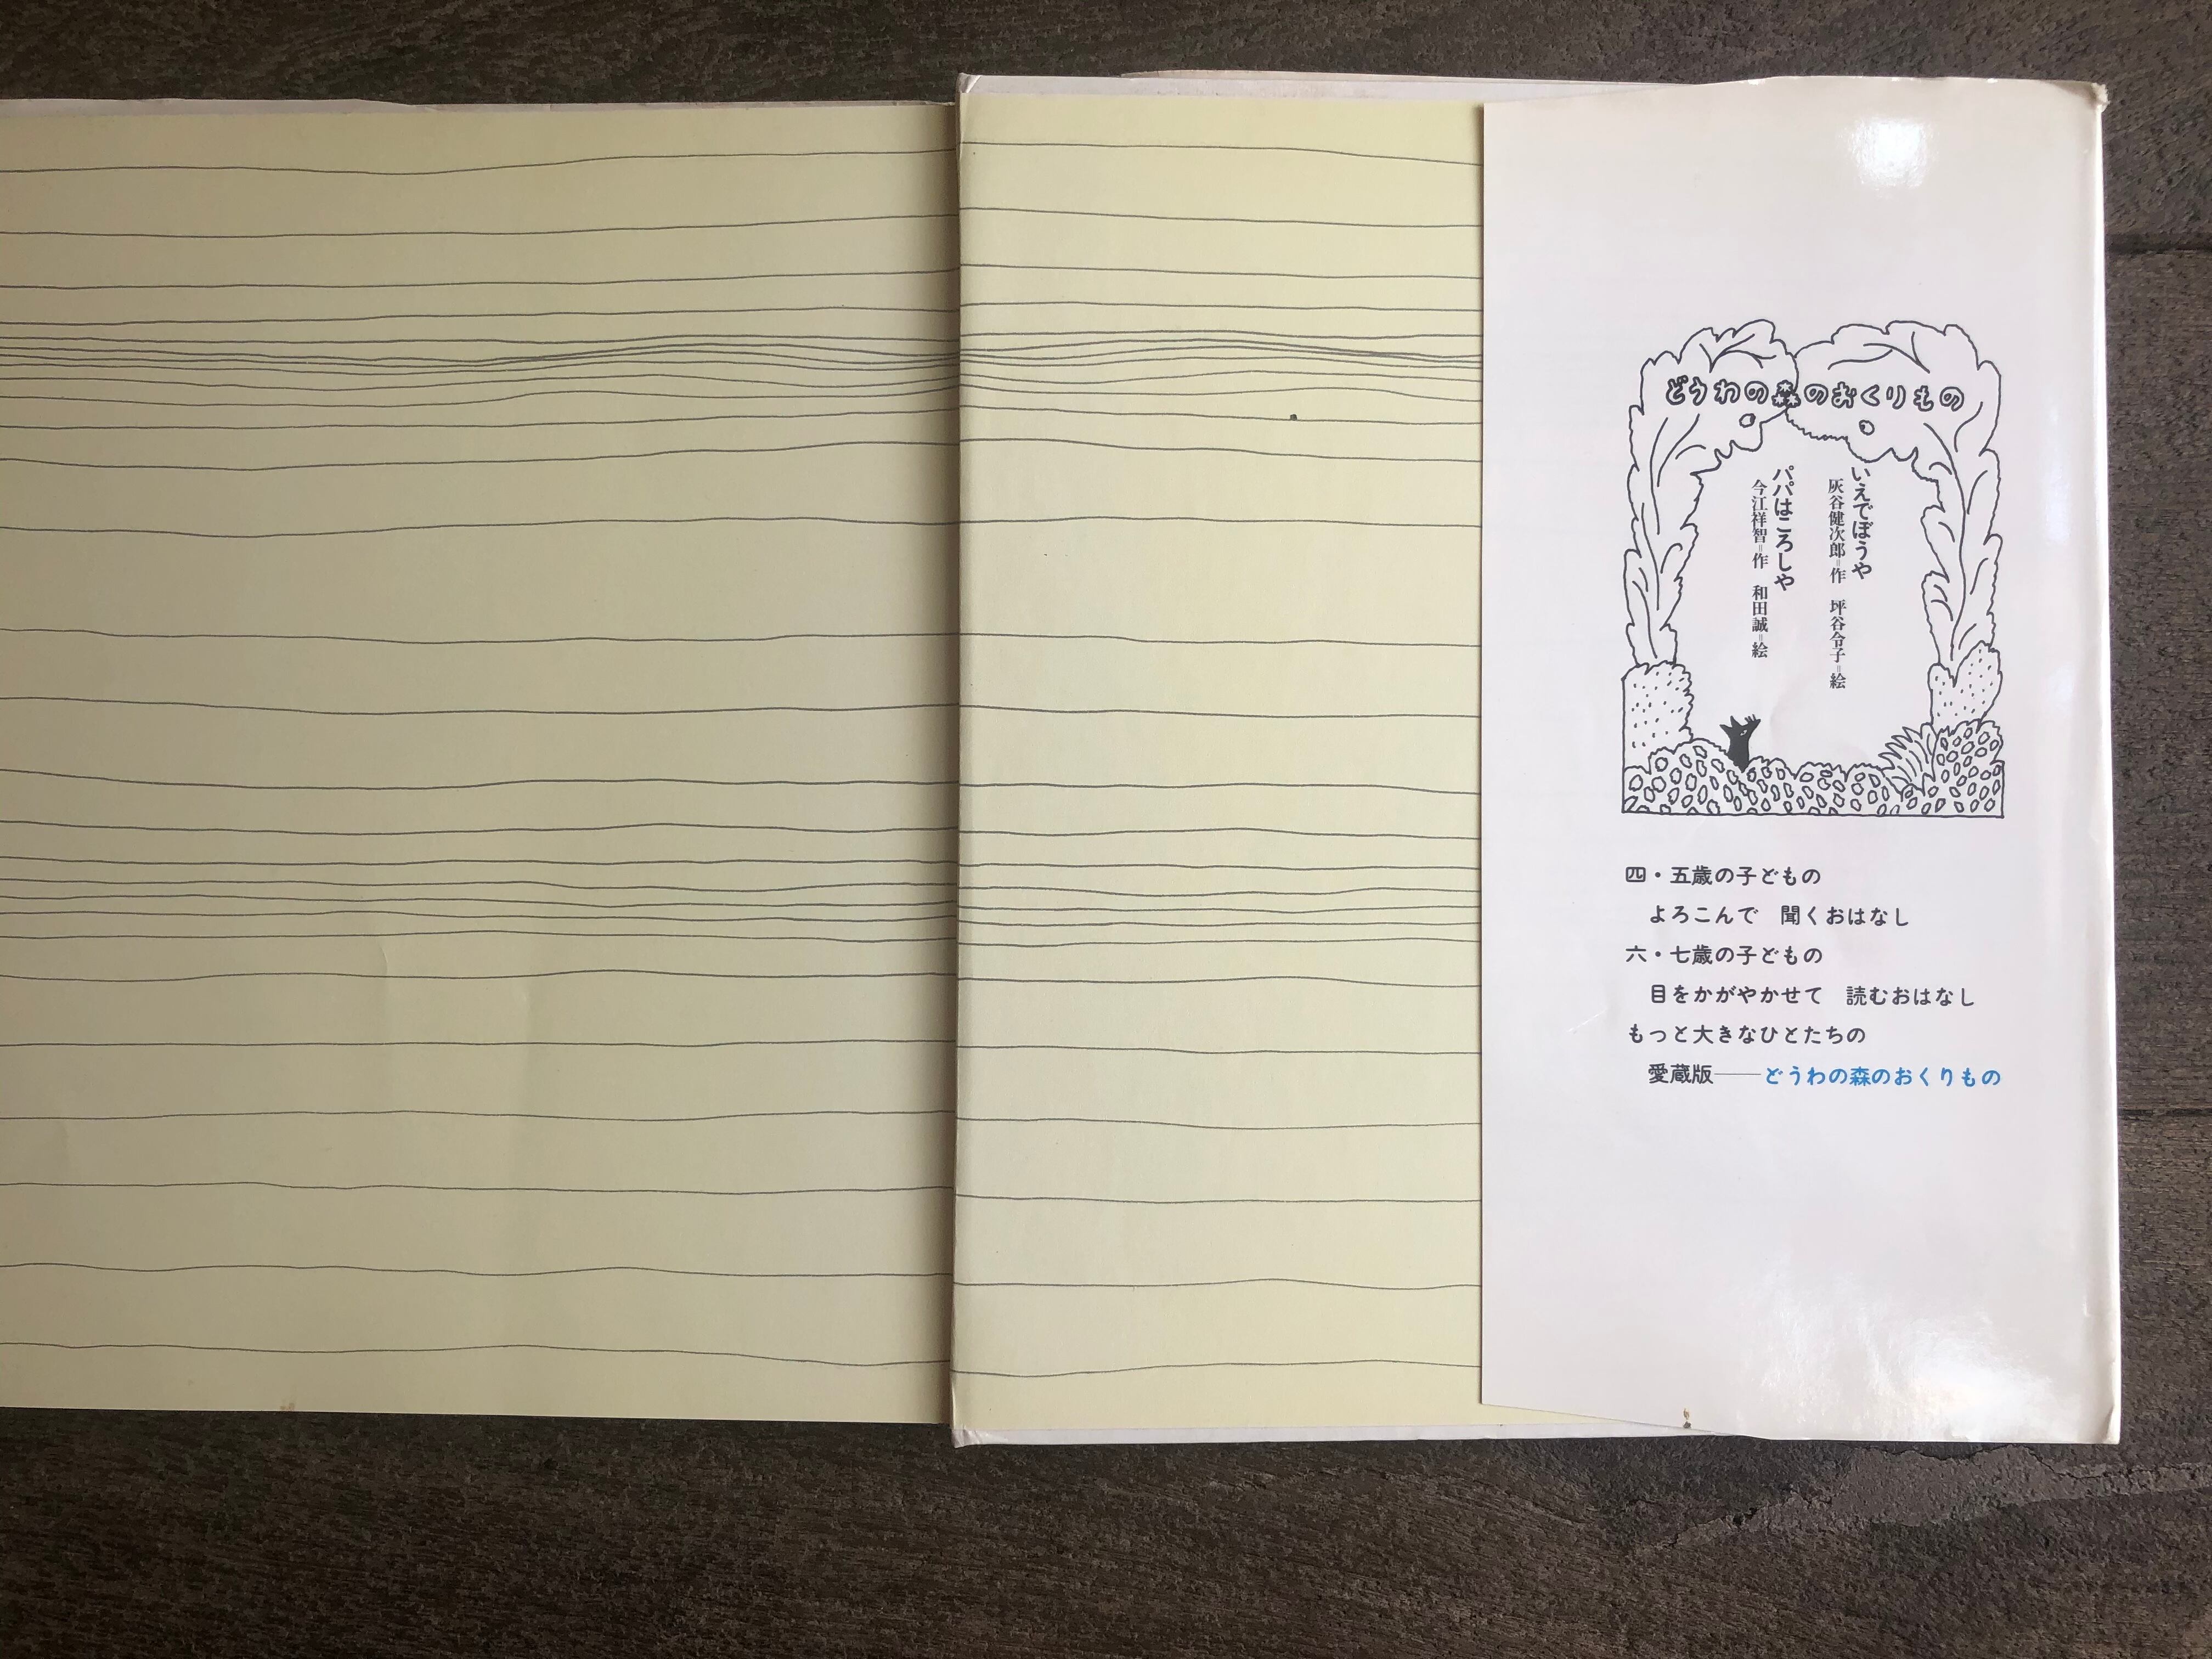 どうわの森のおくりもの
いえでぼうや
灰谷健次郎=作　坪谷令子=絵
パパはころしや
今江祥智=作　和田誠=絵
四・五歳の子どもの
よろこんで　聞くおはなし
六・七歳の子どもの
目をかがやかせて　読むおはなし
もっと大きなひとたちの
愛蔵版――どうわの森のおくりもの